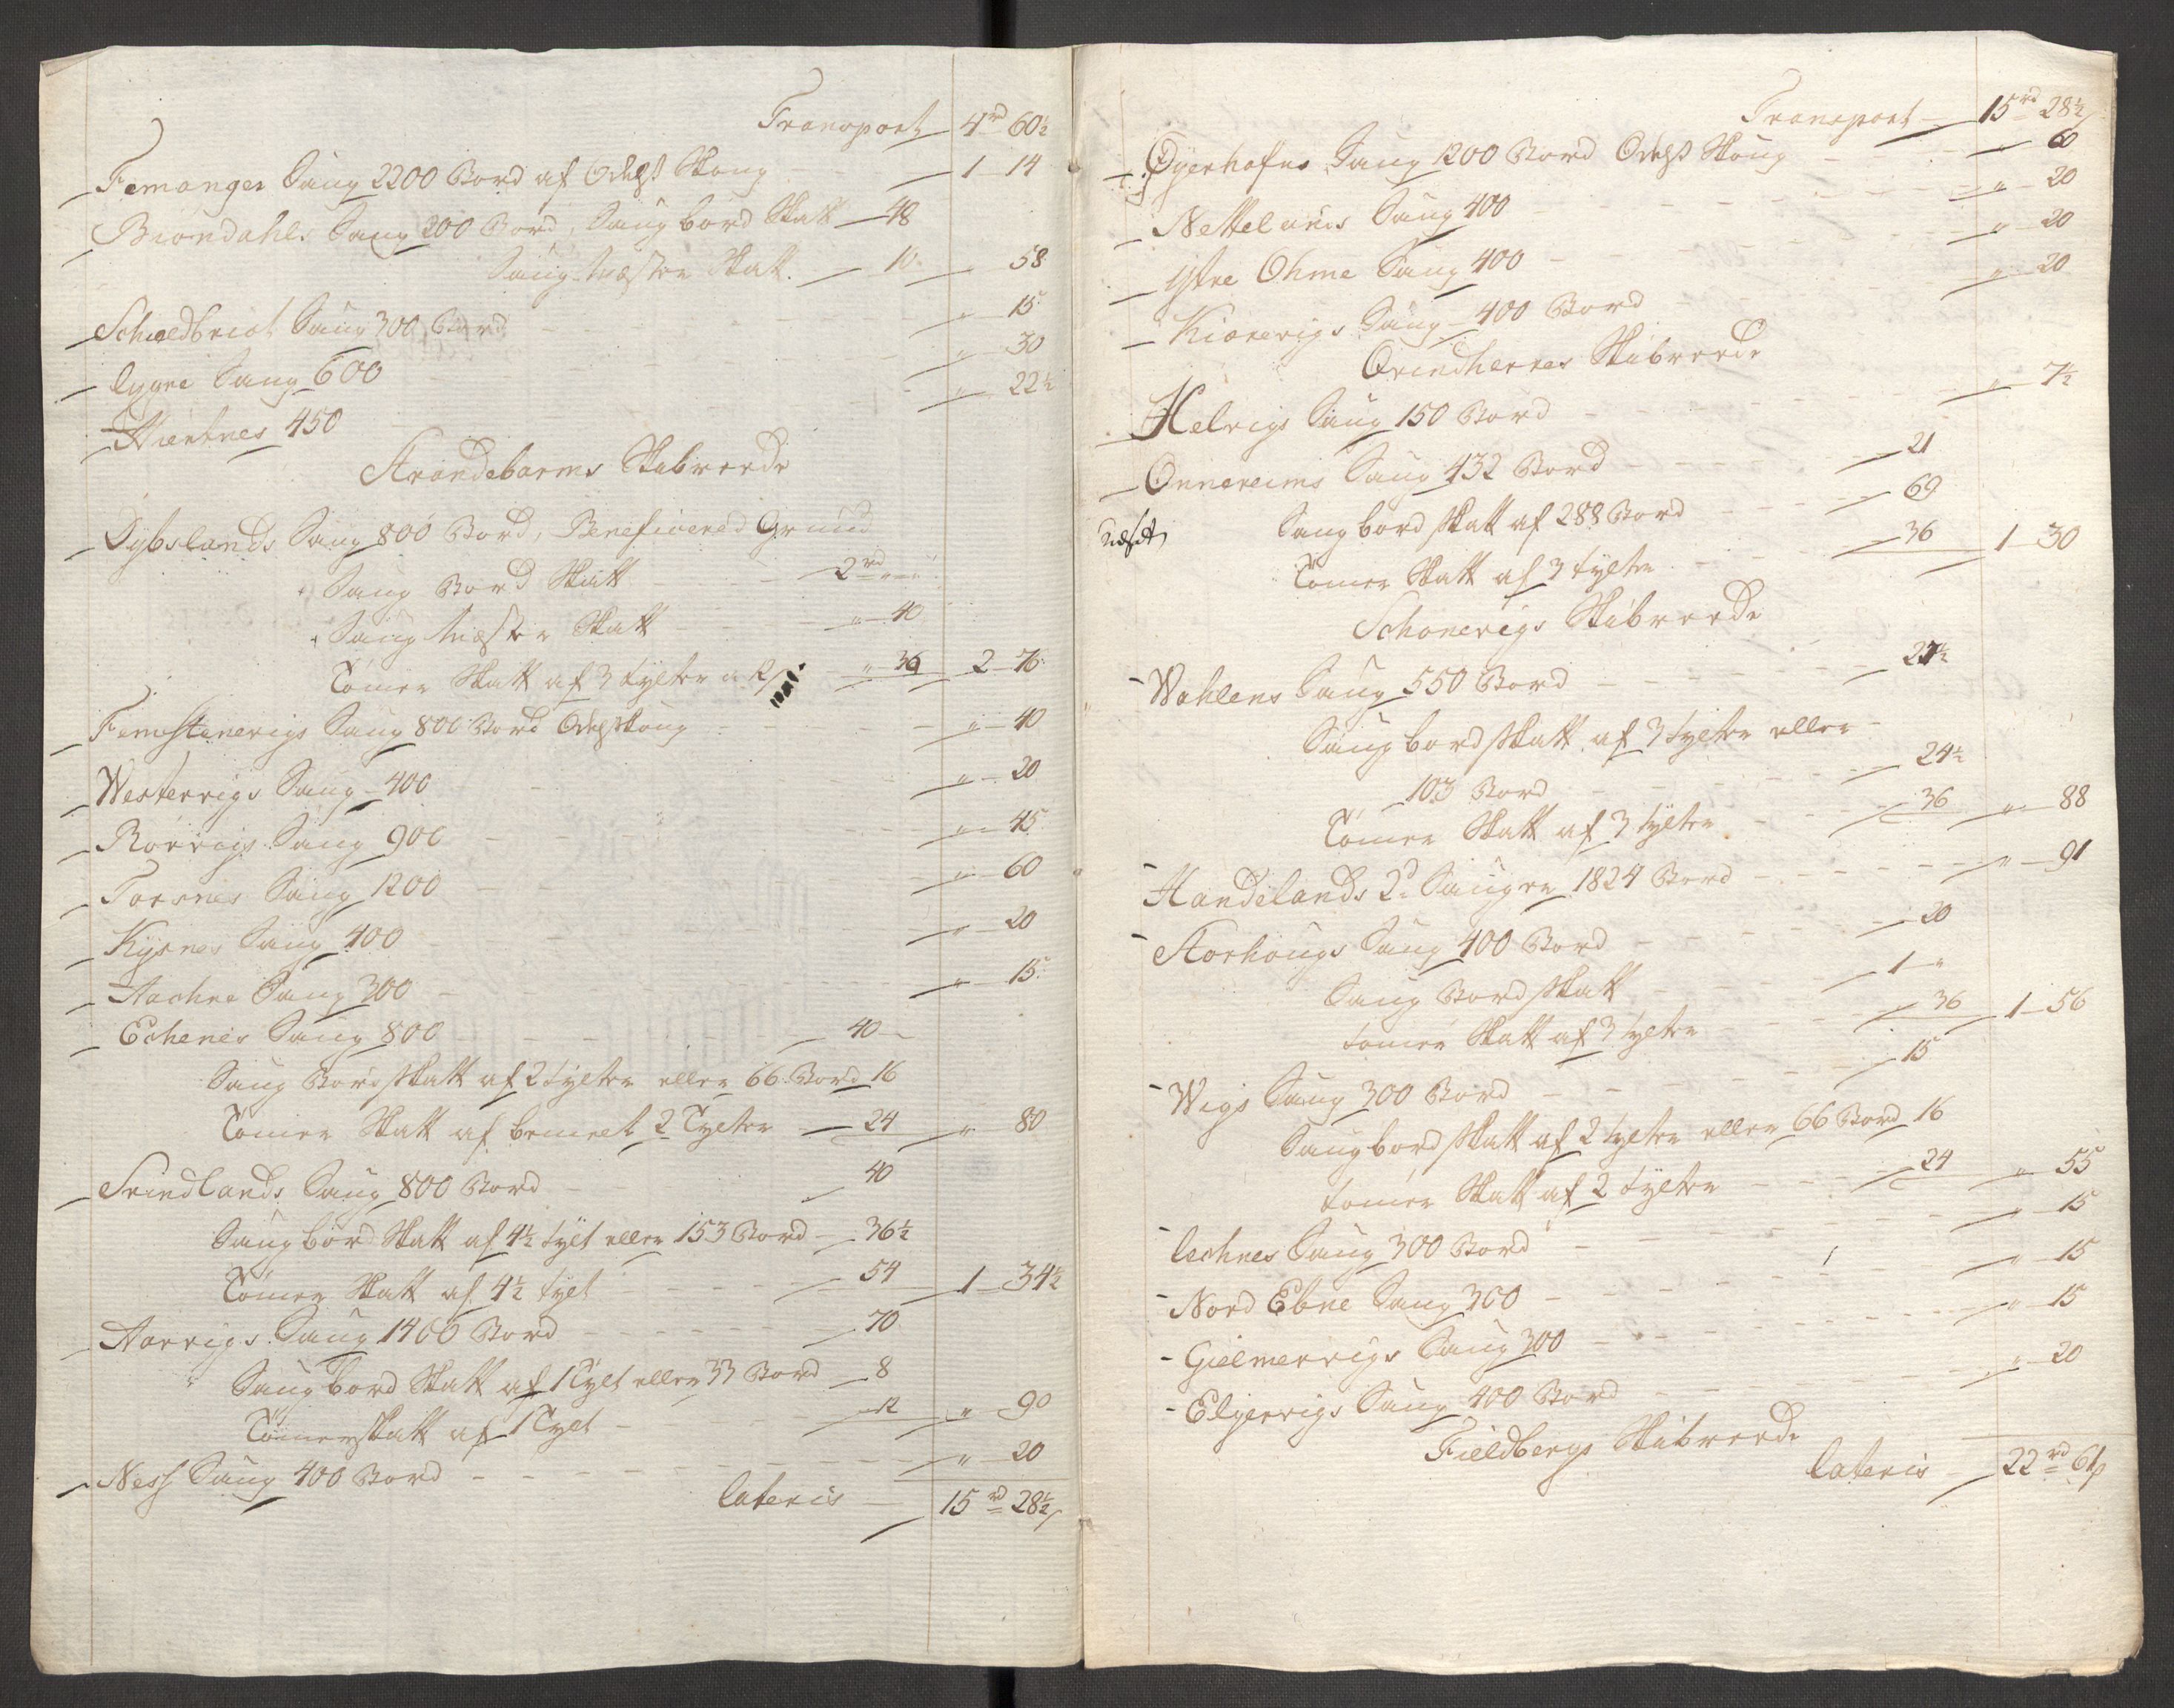 Transport 4 rd 60½
Femanger Saug 2200 Bord af Odelss Skoug 1 14
Biondahls Saug 200 Bord, Saugbord Skatt 48
Saugmester Skatt. 10 " 58
Schieldbriot Saug 300 Bord " 15
Lygre Saug 600 " 30
Hientnes 450 " 22½
Strandebarms Skibreede
Dybslands Saug 800 Bord, Beneficered Grund
Saug Bord Skatt 2 rd " "
Saug Mester Skatt " 40
Tømer Skatt af 3 tylter a 12 s " 36 2 76
Femstenerigs Saug 800 Bord Odelsskoug " 40
Westerrigs Saug 400 " 20
Rørrigs Saug 900 " 45
Torsnes Saug 1200 " 60
Kysnes Saug 400 " 20
Aachre Saug 300 " 15
Echenes Saug 800 40
Saug Bordskatt af 2 tylter eller 66 Bord 16
Tømer Skatt af bemeelt 2 Tylter 24 " 80
Srindlands Saug 800 Bord 40
Saugbord Skatt af 4½ tylt eller 153 Bord 36½
Tømer Skatt af 4½ tylt 54 1 34½
Aarrigs Saug 1400 Bord 70
Saugbord Skatt af 1 Tylt eller 33 Bord 8
Tømmerskatt af 1 Tylt 12 " 90
Ness Saug 400 Bord " 20
Lateris 15 rd 28½ s
Transport 15 rd 28½ s
Øyerhafns Saug 1200 Bord Odelss Skoug " 60
Nettelands Saug 400 " 20
Ytre Ohme Saug 400 " 20
Kiærerigs Saug 400 Bord " 20
Qvindherres Skibreede
Helvigs Saug 150 Bord " 7½
Onnereims Saug 432 Bord 21
Saugbord skatt af 288 Bord 69
Tømer Skatt af 3 tylter 36 1 30
Schonevigs Skibreede
Wahlens Saug 550 Bord 27½
Saugbordskatt af 3 tylter eller
103 Bord 24½
Tømer Skatt af 3 tylter 36 " 88
Handelands 2de Sauger 1824 Bord " 91
Storhougs Saug 400 Bord 20
Saug Bordskatt 1 "
tømer Skatt af 3 tylter 36 1 56
Wigs Saug 300 Bord 15
Saugbordskatt af 2 tylter eller 66 Bord 16
tømer Skatt af 2 tylter 24 " 55
Lechnes Saug 300 Bord " 15
Nord Ebne Saug 300 " 15
Gielmervigs Saug 300 " 15
Elgervigs Saug 400 Bord " 20
Fieldbergs Skibreede
Lateris 22 rd 61 s